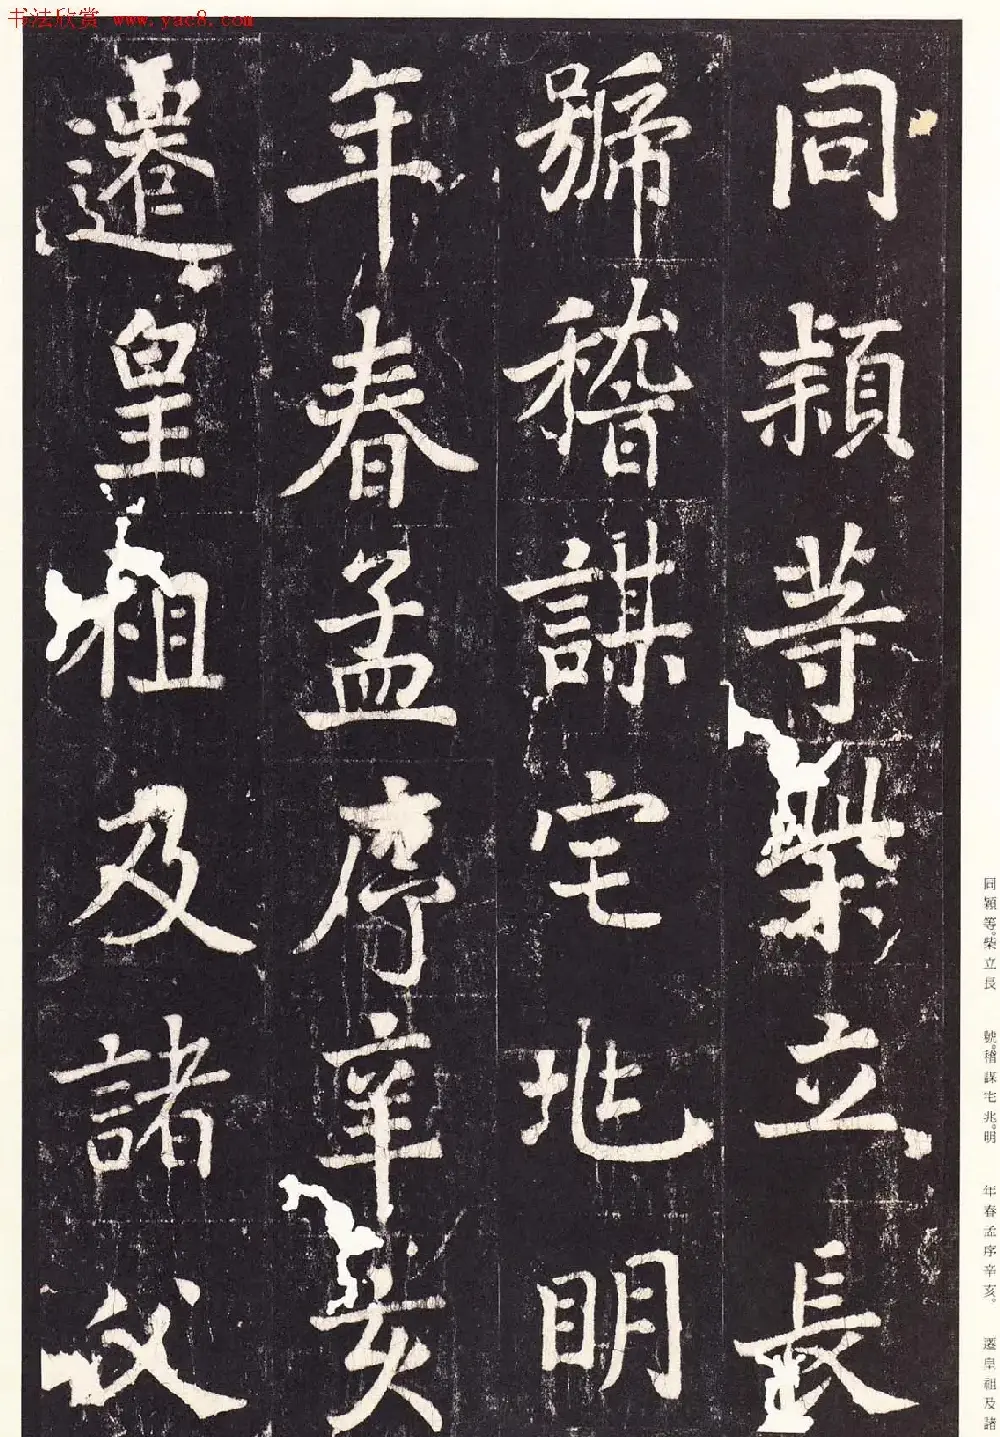 书法欣赏 www.yac8.com
同頴等柴立長
號稽謀宅兆明
年春孟序辛亥
遷皇祖及諸父
同穎等。柴立長 號。稽謀宅兆。明 年春孟序辛亥。 遷皇祖及諸